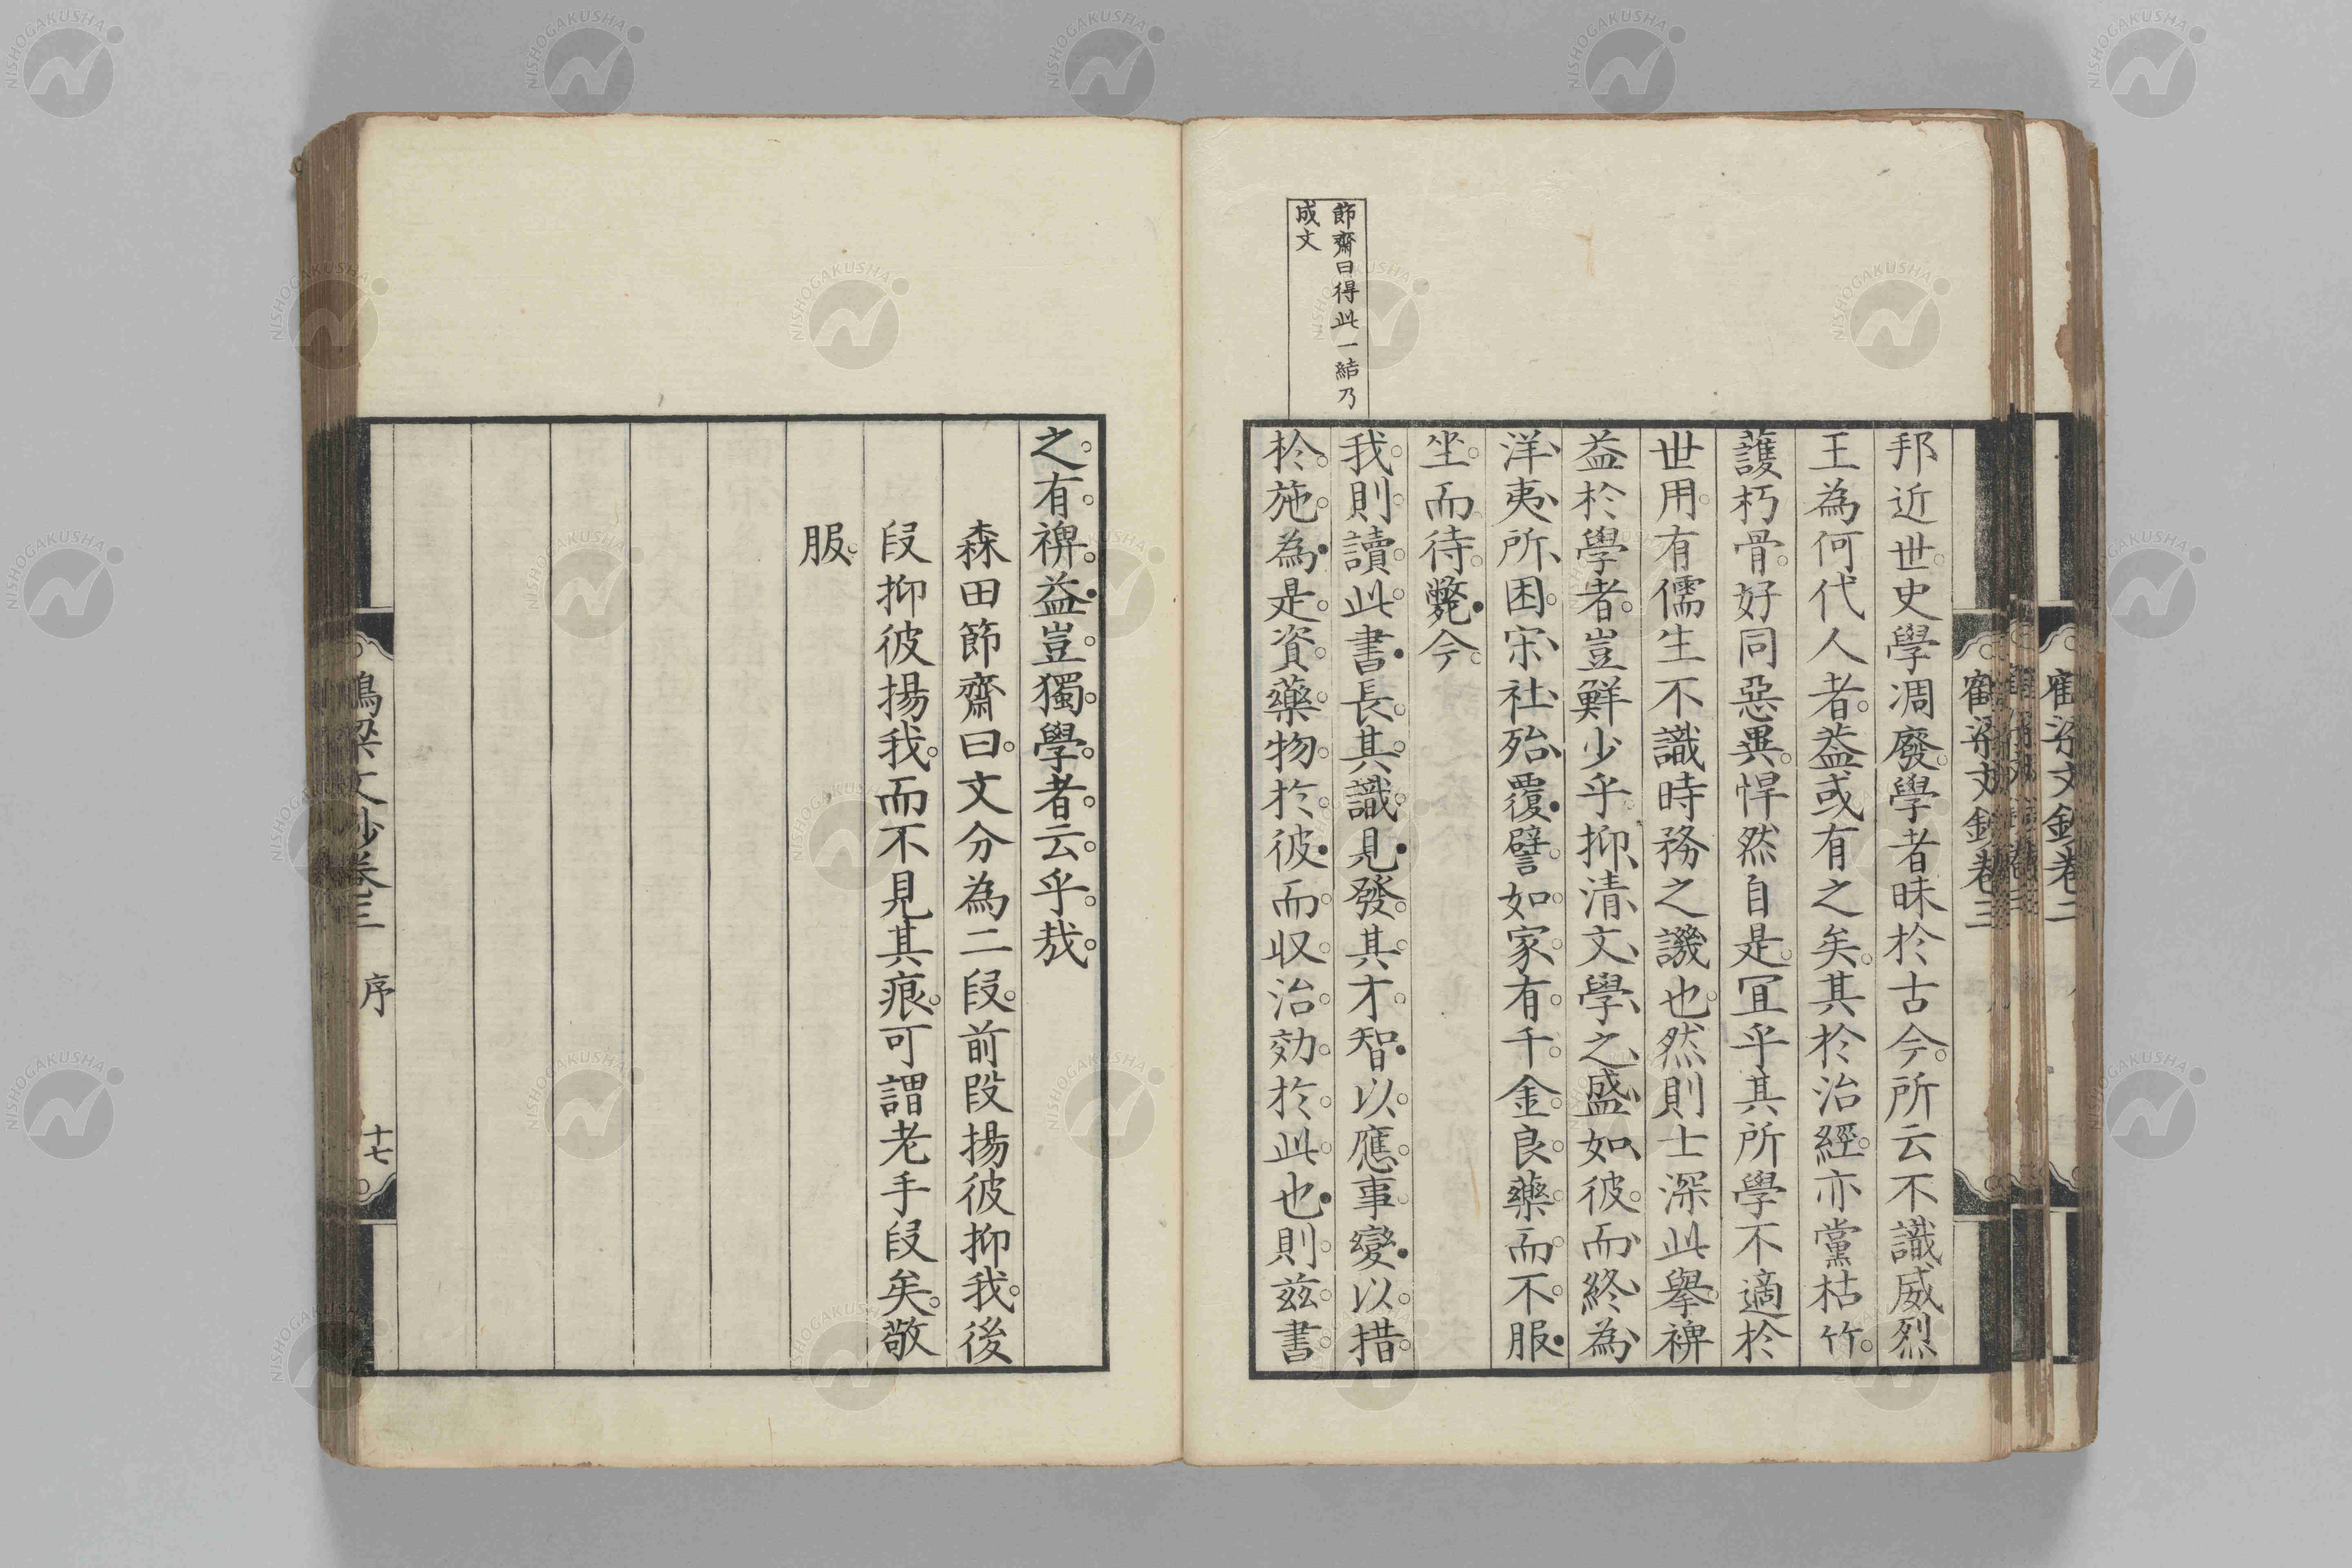 邦近世史學凋廢學者昧於古今所云不識威烈
王為何代人者葢或有之矣其於治經亦黨枯竹
護朽骨好同惡異悍然自是冝乎其所學不適於
世用有儒生不識時務之譏也然則士深此擧裨
益於學者豈鮮少乎抑清文學之盛如彼而終為
洋夷所困宗社殆覆譬如家有千金良藥而不服
坐而待斃今
我則讀此書長其識見發其才智以應事變以措
於施為是資藥物於彼而収治効於此也則茲書
節齋曰得此一結乃
成文
之有裨益豈獨學者云乎哉
森田節齋曰文分為二段前段揚彼抑我後
段抑彼揚我而不見其痕可謂老手段矣敬
服
鶴梁文鈔卷三 序 十七
鶴梁文鈔卷三
鶴梁文鈔卷二
NISHOGAKUSHA